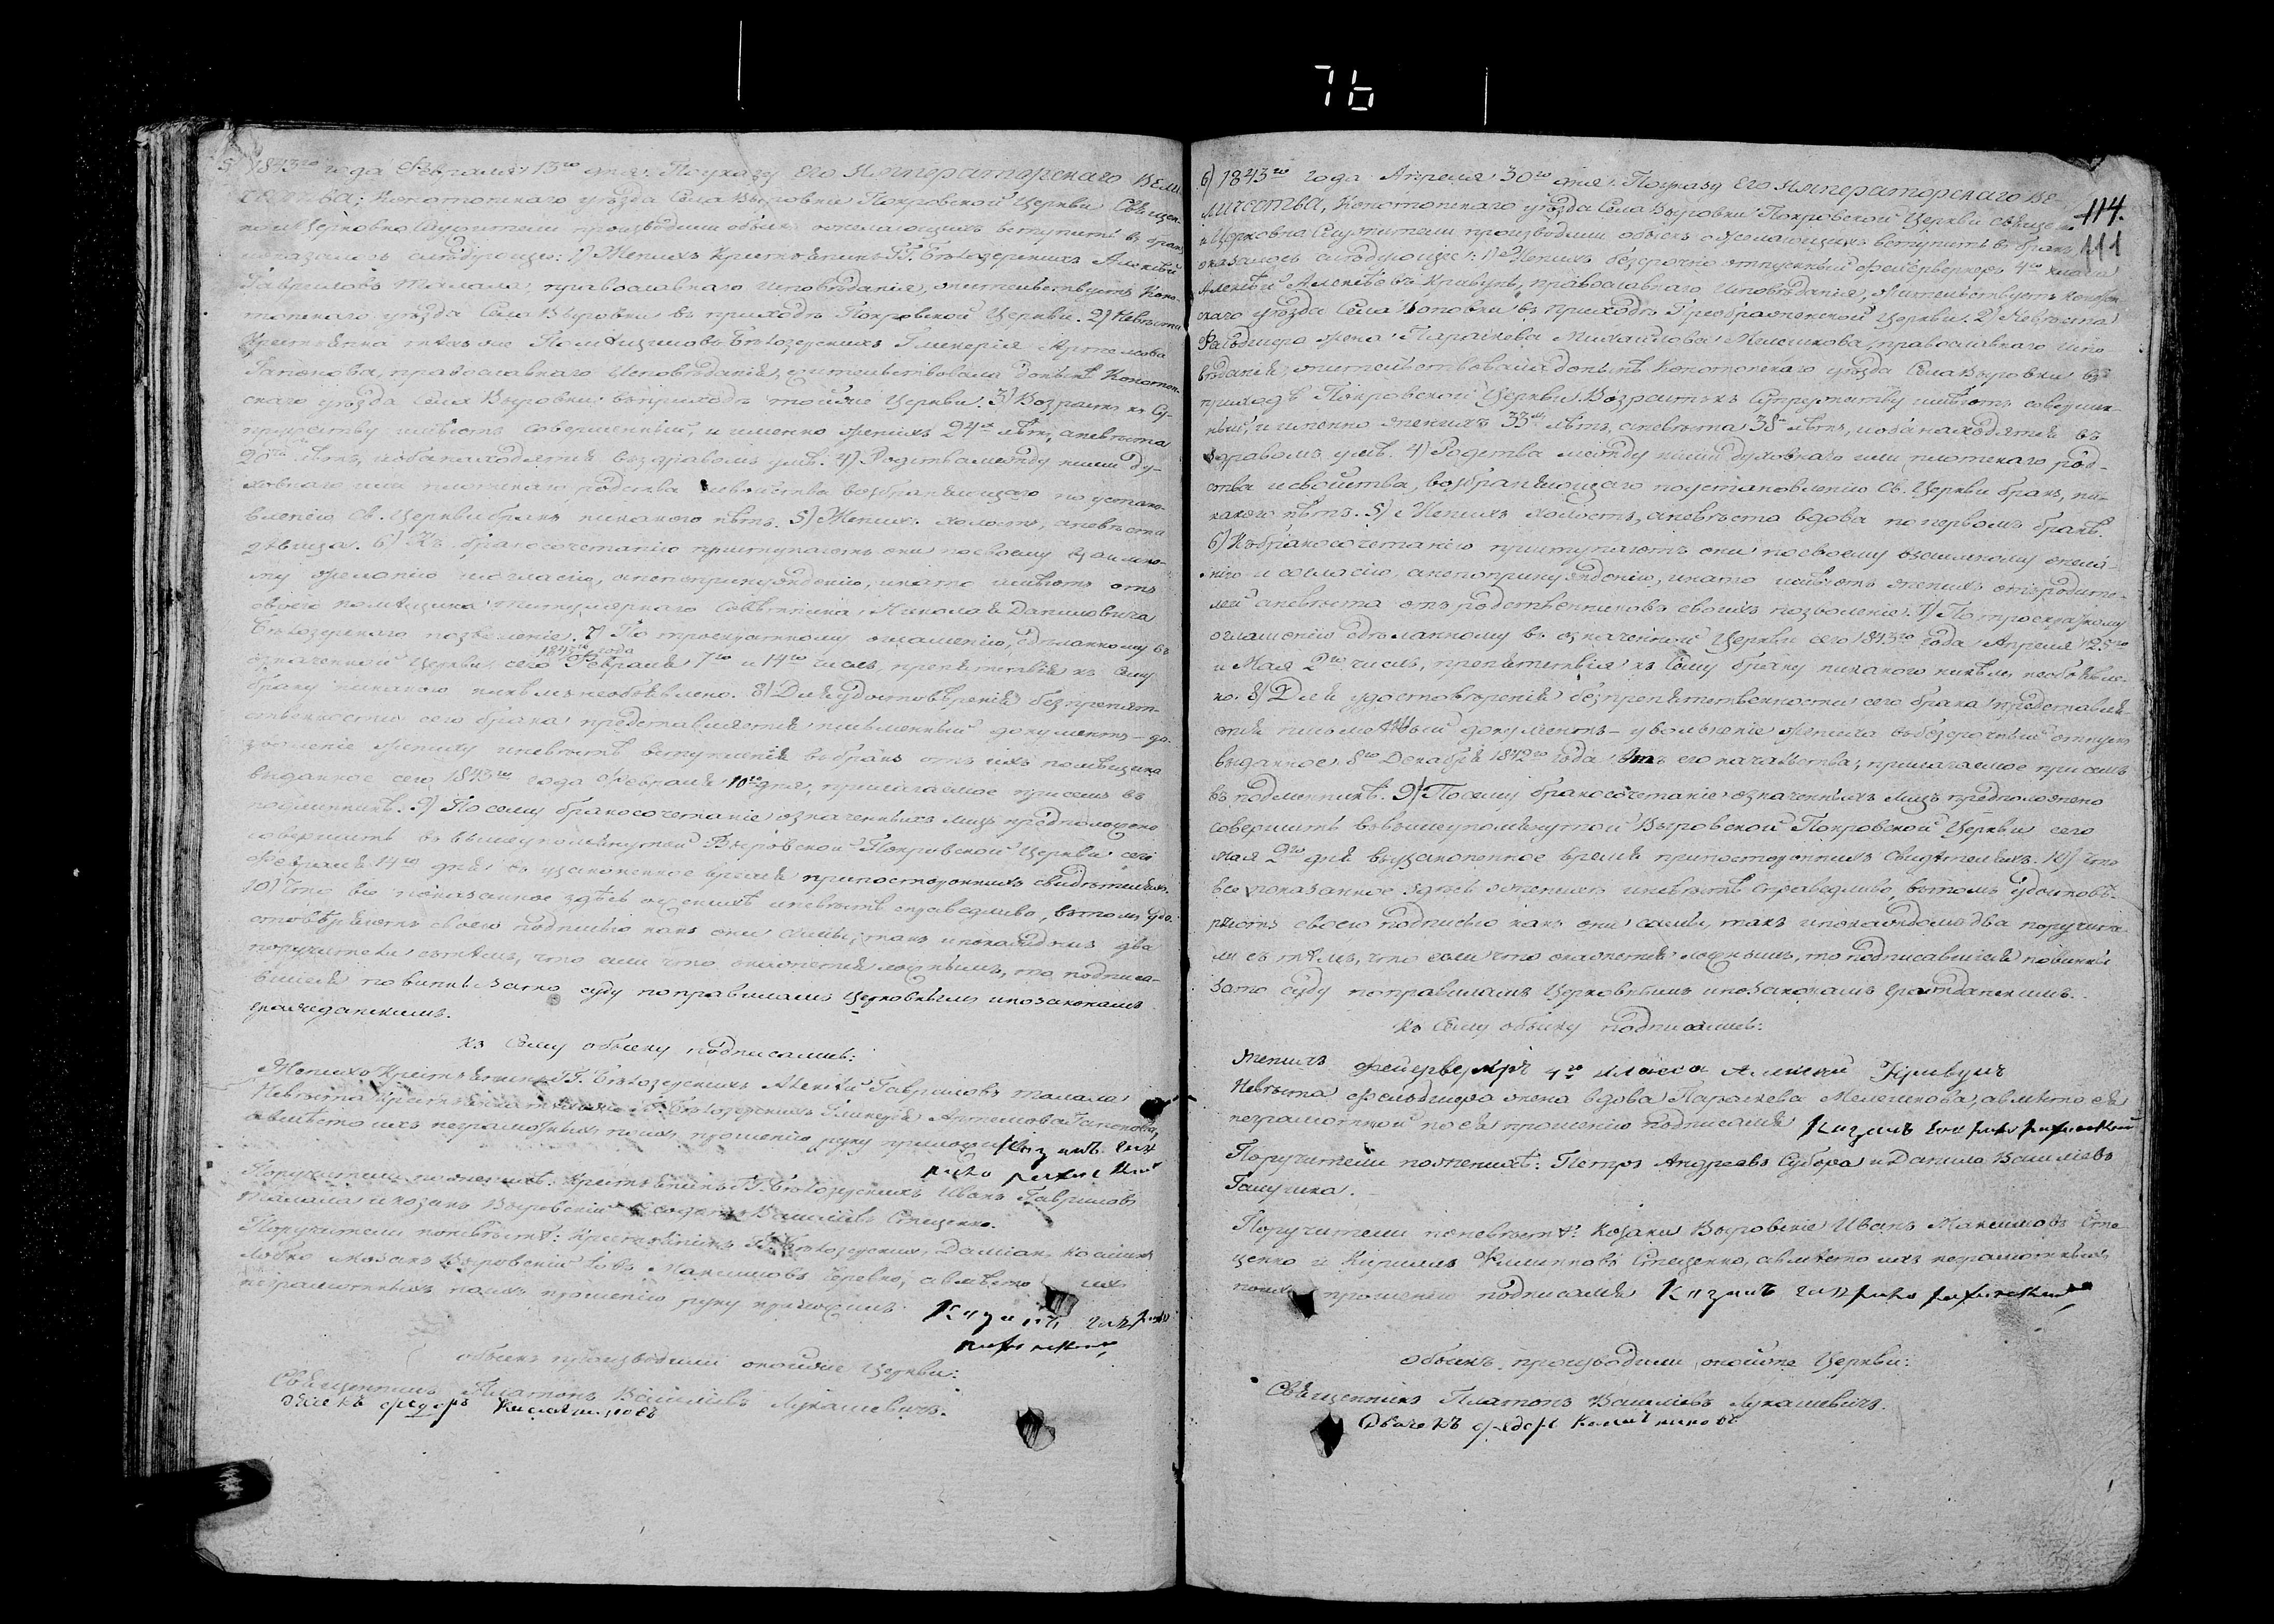 76
5) 1843го года Февраля 13го дня. По указу Его Императорскаго Вели-
чества, Конотопскаго уѣзда Села Выровки Покровской Церкви Священ-
но и Церковно Служители производили обыскъ о желающихъ вступить в бракъ
и оказалось слѣдующее: 1) Женихъ Крестьянинъ ГГ. Бѣлозерскихъ Алексѣй
Гавриловъ Талала, православнаго исповѣданія, жительствуетъ Коно-
топскаго уѣзда Села Выровки въ приходѣ Покровской Церкви. 2) Невѣста
Крестьянка тѣхъ же Помѣщиковъ Бѣлозерскихъ Гликерія Артемова
Гапонова, православнаго исповѣданія, жительствовала донынѣ Конотоп-
скаго уѣзда Села Выровки въ приходѣ тойже Церкви. 3) Возрастъ къ Су-
пружеству имѣютъ совершенный, и именно женихъ 24х лѣтъ, а невѣста
20ти лѣтъ, и оба находятся въ здравомъ умѣ. 4) Родства между ними ду-
ховнаго или плотскаго родства и свойства возбраняющаго по устано-
вленію Св. Церкви бракъ никакого нѣтъ. 5) Женихъ холостъ, а невѣста
дѣвица. 6) Къ бракосочетанію приступаютъ они по своему взаимно-
му желанію и согласію, а не по принужденію, и на то имѣютъ отъ
своего помѣщика титулярнаго Совѣтника Николая Даниловича
Бѣлозерскаго позволеніе. 7) По троекратному оглашенію, сдѣланному въ
означенной Церкви сего 1843го года Февраля 7го и 14го числъ, препятствія къ сему
браку никакого никѣмъ не объявлено. 8) Для удостовѣренія безпрепят-
ственности сего брака представляется письменный документъ – до-
зволеніе жениху и невѣстѣ вступленія въ бракъ отъ ихъ помѣщика
выданное сего 1843го года Февраля 10го дня, прилагаемое при семъ въ
подлинникѣ. 9) По сему бракосочетаніе означенныхъ лицъ предположено
совершить въ вышеупомянутой Выровской Покровской Церкви сего
Февраля 14го дня въ узаконенное время при постороннихъ свидѣтеляхъ.
10) Что все показанное здѣсь о женихѣ и невѣстѣ справедливо, въ томъ удо-
стовѣряютъ своею подписью какъ они сами, такъ и по каждомъ два
поручителя съ тѣмъ, что если что окажется ложнымъ, то подписа-
вшіеся повинны за то суду по правиламъ Церковнымъ и по законамъ
гражданскимъ.
Къ сему обыску подписались:
Женихъ Крестьянинъ ГГ. Бѣлозерскихъ Алексѣй Гавриловъ Талала
Невѣста Крестьянка тѣхъ же ГГ. Бѣлозерскихъ Гликерія Артемова Гапонова,
а вмѣсто ихъ неграмотныхъ по ихъ прошенію руку приложилъ
Поручители по женихѣ: Крестьянинъ ГГ. Бѣлозерскихъ Иванъ Гавриловъ
Талала и козакъ Выровскій Васильевъ Стеценко.
Поручители по невѣстѣ: Крестьянинъ ГГ. Бѣлозерскихъ Даміанъ
и козакъ Выровскій Іовъ Максимовъ а вмѣсто ихъ
неграмотныхъ по ихъ прошенію руку приложилъ
обыскъ производили онойже Церкви:
Священникъ Платонъ Васильевъ Лукашевичъ.
Дьячекъ Федоръ
114.
111
6) 1843го года Апрѣля 30го дня. По указу Его Императорскаго Ве-
личества, Конотопскаго уѣзда Села Выровки Покровской Церкви Священно
и Церковно Служители производили обыскъ о желающихъ вступить въ бракъ и
оказалось слѣдующее: 1) Женихъ безсрочно отпускный фейерверкеръ 4го класса
Алексѣй Алексѣевъ Кривунъ, православнаго исповѣданія, жительствуетъ Конотоп-
скаго уѣзда Села Поповки въ приходѣ Преображенской Церкви. 2) Невѣста
Фельдшера жена Параскева Михайлова Мелешкова, православнаго испо-
вѣданія, жительствовала донынѣ Конотопскаго уѣзда Села Выровки въ
приходѣ Покровской Церкви. Возрастъ къ Супружеству имѣютъ соверше-
нный, и именно женихъ 33 лѣтъ, а невѣста 38 лѣтъ, и оба находятся въ
здравомъ умѣ. 4) Родства между ними духовнаго или плотскаго род-
ства и свойства, возбраняющаго по установленію Св. Церкви бракъ, ни-
какого нѣтъ. 5) Женихъ холостъ, а невѣста вдова по первомъ бракѣ.
6) Къ бракосочетанію приступаютъ они по своему взаимному жела-
нію и согласію, а не по принужденію, и на то имѣютъ женихъ отъ родите-
лей а невѣста отъ родственниковъ своихъ позволеніе. 7) По троекратному
оглашенію сдѣланному въ означенной Церкви сего 1843го года Апрѣля 25го
и Мая 2го числъ, препятствія къ сему браку никакого никѣмъ не объявле-
но. 8) Для удостовѣренія безпрепятственности сего брака представля-
ется письменный документъ – увольненіе жениха въ безсрочный отпускъ
выданное 8го Декабря 1842го года отъ его начальства, прилагаемое при семъ
въ подлинникѣ. 9) По сему бракосочетаніе означенныхъ лицъ предположено
совершить въ вышеупомянутой Выровской Покровской Церкви сего
мая 2го дня въ узаконенное время при постороннихъ свидѣтеляхъ. 10) Что
все показанное здѣсь о женихѣ и невѣстѣ справедливо, въ томъ удостовѣ-
ряютъ своею подписью какъ они сами, такъ и по каждомъ два поручите-
ли съ тѣмъ, что если что окажется ложнымъ, то подписавшіеся повинны
за то суду по правиламъ Церковнымъ и по законамъ гражданскимъ.
Къ сему обыску подписались:
Женихъ Фейерверкеръ 4го класса Алексей Кривунъ
Невѣста Фельдшера жена вдова Параскева Мелешкова, а вмѣсто ея
неграмотной по ея прошенію подписался
Поручители по женихѣ: Петръ Андреевъ Субота и Данило Васильевъ
Галушка.
Поручители по невѣстѣ: Козаки Выровскіе Иванъ Максимовъ Сте-
ценко и Кириллъ Филипповъ Стеценко, а вмѣсто ихъ неграмотныхъ
по ихъ прошенію подписался
Обыскъ производили онойже Церкви:
Священникъ Платонъ Васильевъ Лукашевичъ.
Дьячекъ Федоръ